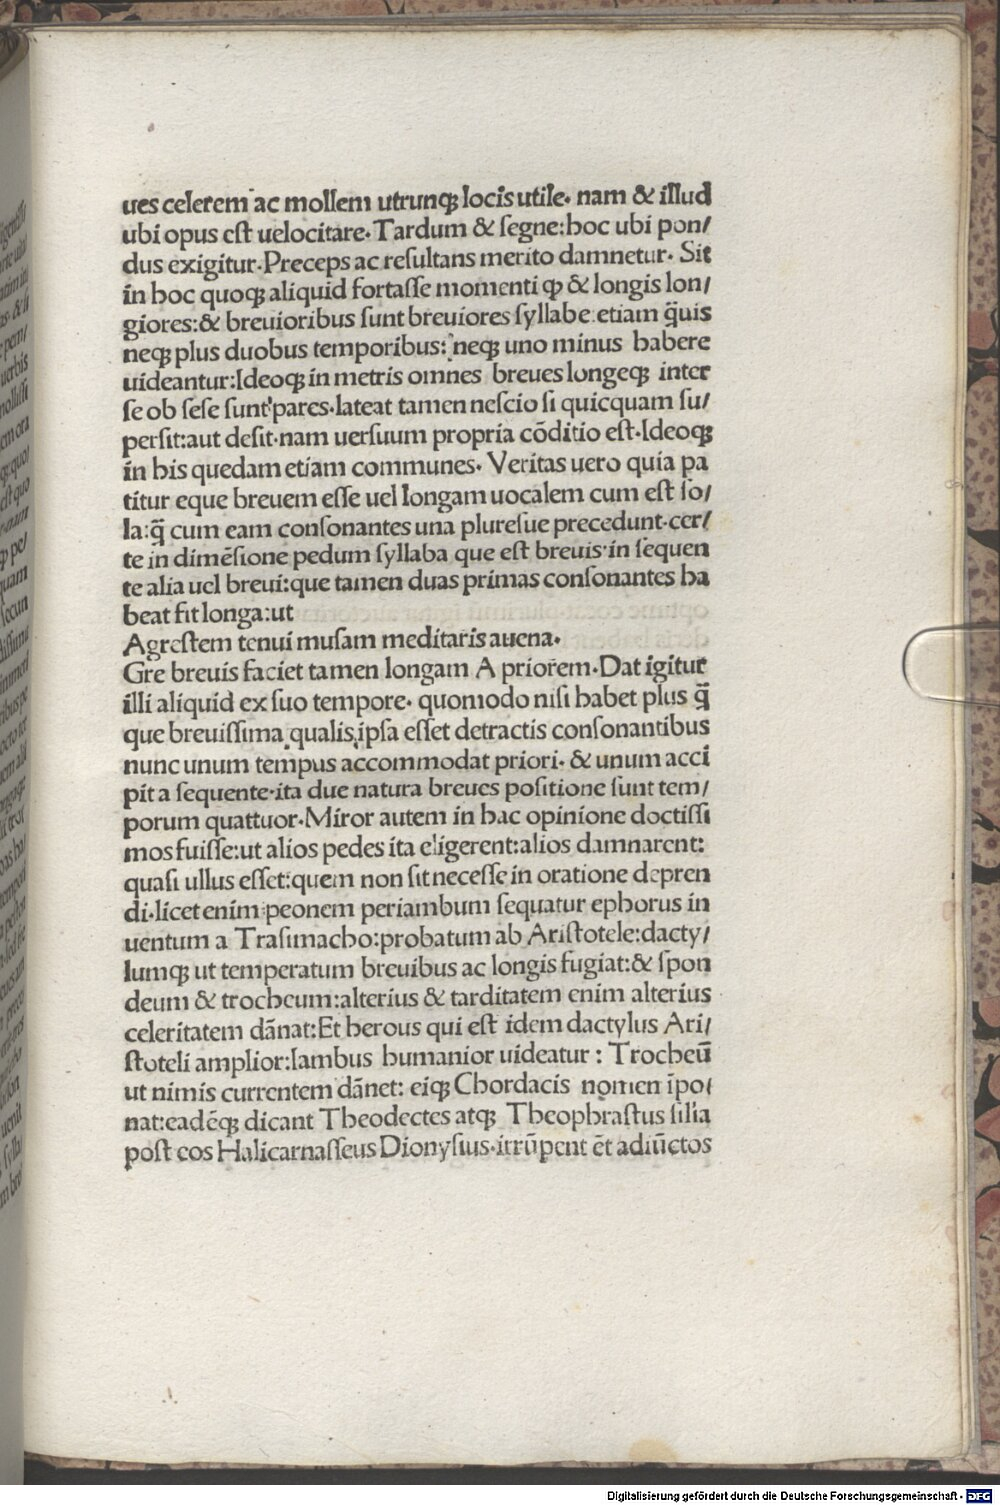 ues celerem ac mollem utrunqꝫ locis utile· nam & illud
ubi opus est uelocitare·Tardum & segne:hoc ubi pon/
dus exigitur·Preceps ac resultans merito damnetur· Sit
in hoc quoqꝫ aliquid fortasse momenti ꝙ & longis lon/
giores:& breuioribus sunt breuiores syllabe:etiam q̄uis
neqꝫ plus duobus temporibus: neqꝫ uno minus habere
uideantur:Ideoqꝫ in metris omnes breues longeqꝫ inter
se ob sese sunt pares·lateat tamen nescio si quicquam su/
persit:aut desit·nam uersuum propria cōditio est·Ideoqꝫ
in his quedam etiam communes· Veritas uero quia pa
titur eque breuem esse uel longam uocalem cum est so/
la:q̄ cum eam consonantes una pluresue precedunt·cer/
te in dimēsione pedum syllaba que est breuis·in sequen
te alia uel breui:que tamen duas primas consonantes ha
beat fit longa:ut
Agrestem tenui musam meditaris auena·
Gre breuis faciet tamen longam A priorem·Dat igitur
illi aliquid ex suo tempore· quomodo nisi habet plus q̄
que breuissima qualis ipsa esset detractis consonantibus
nunc unum tempus accommodat priori· & unum acci
pit a sequente·ita due natura breues positione sunt tem/
porum quattuor·Miror autem in hac opinione doctissi
mos fuisse:ut alios pedes ita eligerent:alios damnarent:
quasi ullus esset:quem non sit necesse in oratione depren
di·licet enim peonem periambum sequatur ephorus in
uentum a Trasimacho:probatum ab Aristotele:dacty/
lumqꝫ ut temperatum breuibus ac longis fugiat:& spon
deum & trocheum:alterius & tarditatem enim alterius
celeritatem dānat:Et herous qui est idem dactylus Ari/
stoteli amplior:Iambus humanior uideatur : Trocheū
ut nimis currentem dānet: eiqꝫ Chordacis nomen īpo/
nat:eadēqꝫ dicant Theodectes atqꝫ Theophrastus silia
post eos Halicarnasseus Dionysius·irrūpent ēt adiūctos
Digitalisierung gefördert durch die Deutsche Forschungsgemeinschaft - DFG